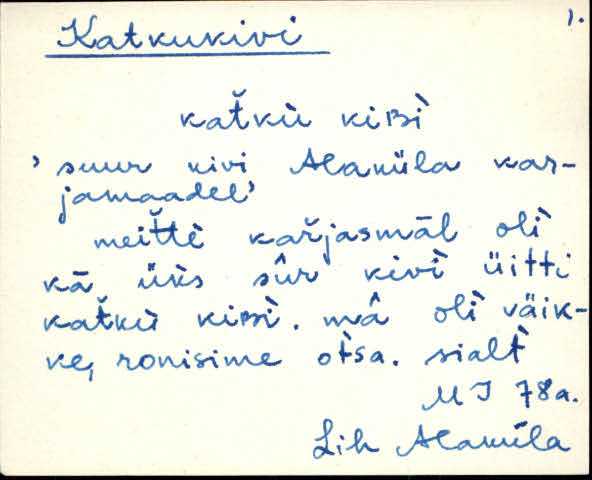 1.
Katkukivi
kat̆kù kiʙì
' suur kivi Alaküla kar-
jamaadel'
meit̆tè kar̆jasmāl olì
kā üks sûr kivì üitti
kat̆kù kiʙì. mâ olì väik-
ke, ronisime otsa. sialt̀
M J 78a.
Lih Alaküla